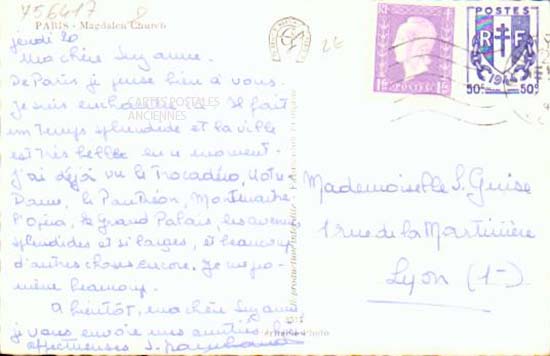 756417
PARIS - Magdalen Church
jeudi 20
Ma chère Suzanne.
De Paris je pense bien à vous.
Je suis enchantée Il fait
CARTES POSTALES
ANCIENNES
un temps splendide et la ville
est très belle en ce moment.
J'ai déjà vu le Trocadéro, Notre
Dame, le Panthéon, Montmartre
l'Opéra, le Grand Palais, les avenues
splendides et si larges, et beaucoup
d'autres choses encore. Je me pro-
mène beaucoup.
A bientôt, ma chère Suzanne
je vous envoie mes amitiés
affectueuses S.
2€
POSTES
RF
50c 50c
Mademoiselle S. Guise
1 rue de la Martinière
Lyon (1-)